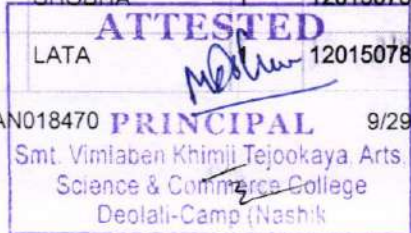 SHOBHA
ATTESTED
LATA 12015078
AN018470 PRINCIPAL 9/29
Smt. Vimlaben Khimji Tejookaya, Arts
Science & Commerce College
Deolali-Camp (Nashik